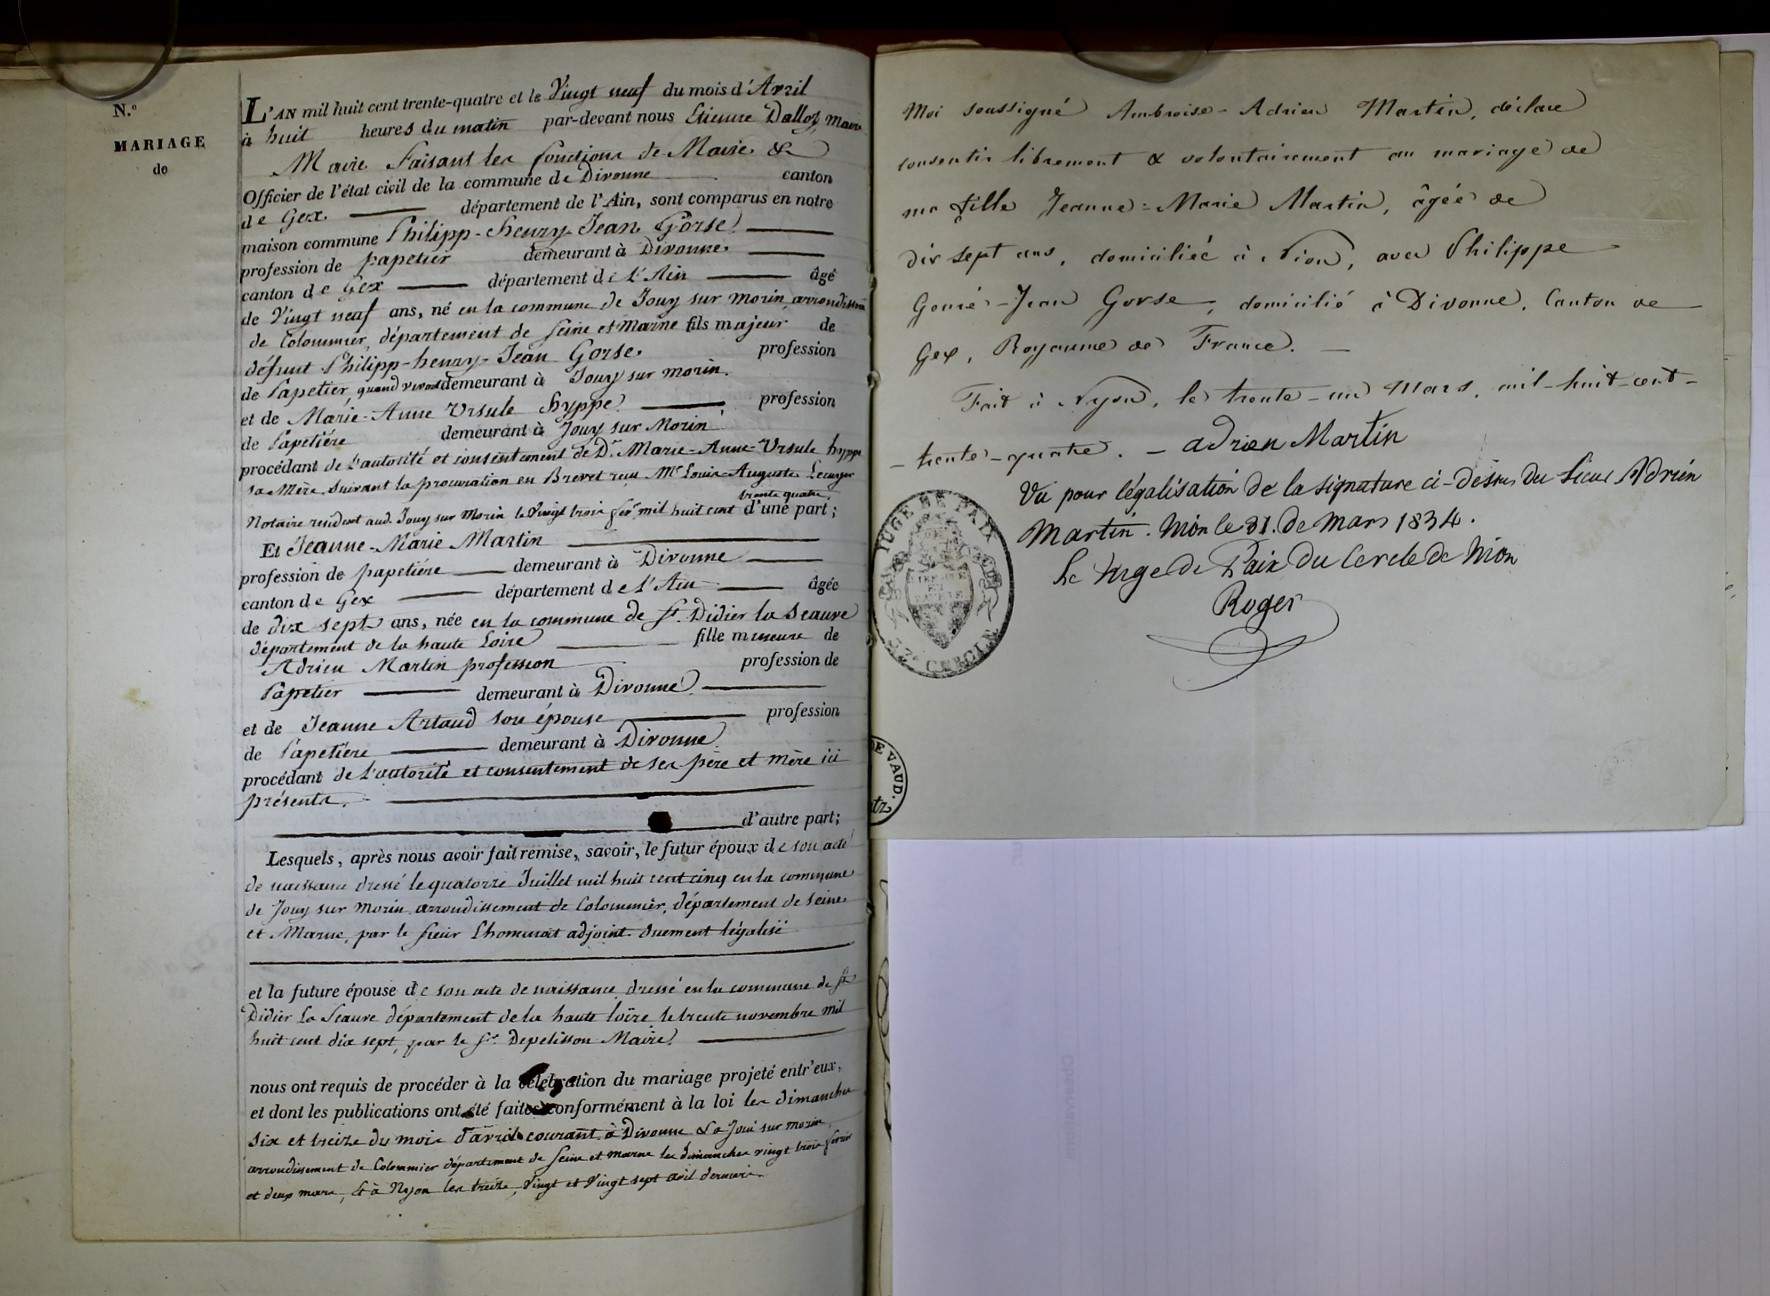 N.º
MARIAGE
de
L'AN mil huit cent trente-quatre et le Vingt neuf du mois d'Avril
à huit heures du matin par-devant nous Etienne Dalloz, Maire
Maire Faisant les fonctions de Maire &
Officier de l'état civil de la commune de Divonne canton
de Gex. département de l'Ain, sont comparus en notre
maison commune Philipp-henry-Jean Gorse.
profession de papetier demeurant à Divonne.
canton de Gex département de l'Ain âgé
de Vingt neuf ans, né en la commune de Jouy sur morin, arrondissm
de Colommier, département de Seine et Marne fils majeur de
défunt Philipp-henry-Jean Gorse. profession
de Papetier, quand vivant demeurant à Jouy sur morin.
et de Marie-Anne Ursule hyppe. profession
de Papetière demeurant à Jouy sur Morin
procédant de l'autorité et consentement de D.e Marie-Anne-Ursule hyppe
sa Mère, suivant la procuration en Brevet reçu Me Louis-Auguste Lecuyer
trente quatre.
Notaire résident aud. Jouy sur Morin le Vingt trois fer mil huit cent d'une part;
Et Jeanne-Marie Martin
profession de papetiére demeurant à Divonne
canton de Gex département de l'Ain âgée
de dix sept ans, née en la commune de St. Didier la Seauve
département de la haute Loire fille mineure de
Adrien Martin profession profession de
Papetier demeurant à Divonne.
et de Jeanne Artaud son épouse profession
de Papetière demeurant à Divonne.
procédant de l'autorité et consentement de ses père et mère ici
présents.
d'autre part;
Lesquels, après nous avoir fait remise, savoir, le futur époux de son acte
de naissance dressé le quatorze Juillet mil huit cent cinq en la commune
de Jouy sur Morin arrondissement de Colommier, département de Seine
et Marne, par le sieur Lhommat adjoint. duement légalisé
et la future épouse de son acte de naissance dressé en la commune de St.
Didier La Seauve département de la haute loire le trente novembre mil
huit cent dix sept, par le Sr. Depelisson Maire.
nous ont requis de procéder à la célébration du mariage projeté entr'eux,
et dont les publications ont été faites conformément à la loi les dimanches
Six et treize du mois d'avril courant à Divonne & a Joui sur morin,
arrondissement de Colommier département de Seine et Marne les dimanches vingt trois février
et deux mars, & à Nyon les treize, Vingt et Vingt sept avril dernier.
Moi soussigné Ambroise-Adrien Martin, déclare
consentir librement & volontairement au mariage de
ma fille Jeanne-Marie Martin, âgée de
dix sept ans, domiciliée à Nion, avec Philippe
-Jean Gorse, domicilié à Divonne, Canton de
Gex, Royaume de France.
Fait à Nyon, le trente-un Mars, mil-huit-cent-
-trente-quatre. - adrien Martin
Vu pour légalisation de la signature ci-dessus du Sieur Adrien
Martin. Nion le 31. de Mars 1834.
Le Juge de Paix du Cercle de Nion
Roger
JUGE DE PAIX
CERCLE
DE VAUD.